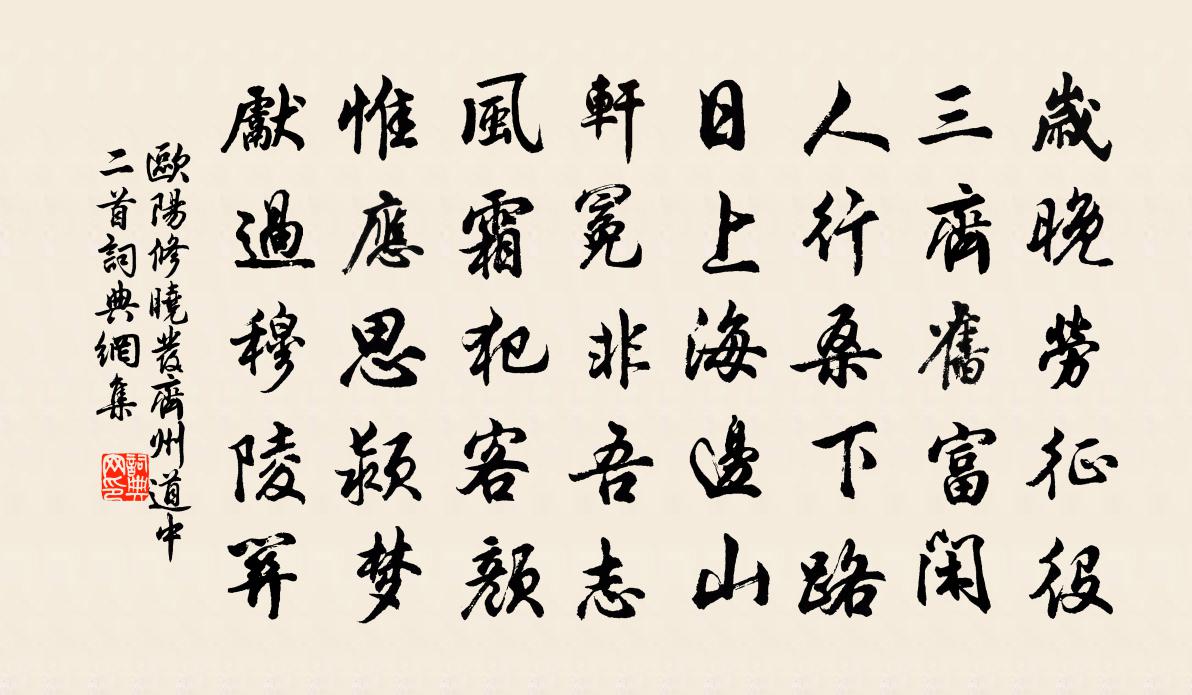 歲晚勞征役
三齊舊富閑
人行桑下路
日上海邊山
軒冕非吾志
風霜犯客顏
惟應思潁梦
獻過穆陵關
歐陽修曉發齊州道中
二首詞典網集
詞典
网印